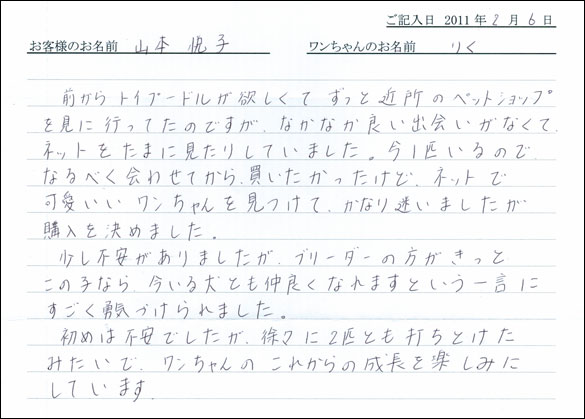 ご記入日 2011年2月6日
お客様のお名前 山本 悦子 ワンちゃんのお名前 りく
前から トイプードルが欲しくて ずっと近所のペットショップ
を見に行ってたのですが、なかなか良い出会いがなくて、
ネットをたまに見たりしていました。今1匹いるので、
なるべく会わせてから、買いたかったけど、ネットで
可愛いい ワンちゃんを見つけて、かなり迷いましたが
購入を決めました。
少し不安がありましたが、ブリーダーの方がきっと
この子なら、今いる犬とも仲良くなれますという一言に
すごく勇気づけられました。
初めは不安でしたが、徐々に2匹とも打ちとけた
みたいで、ワンちゃんの これからの成長を楽しみに
しています。